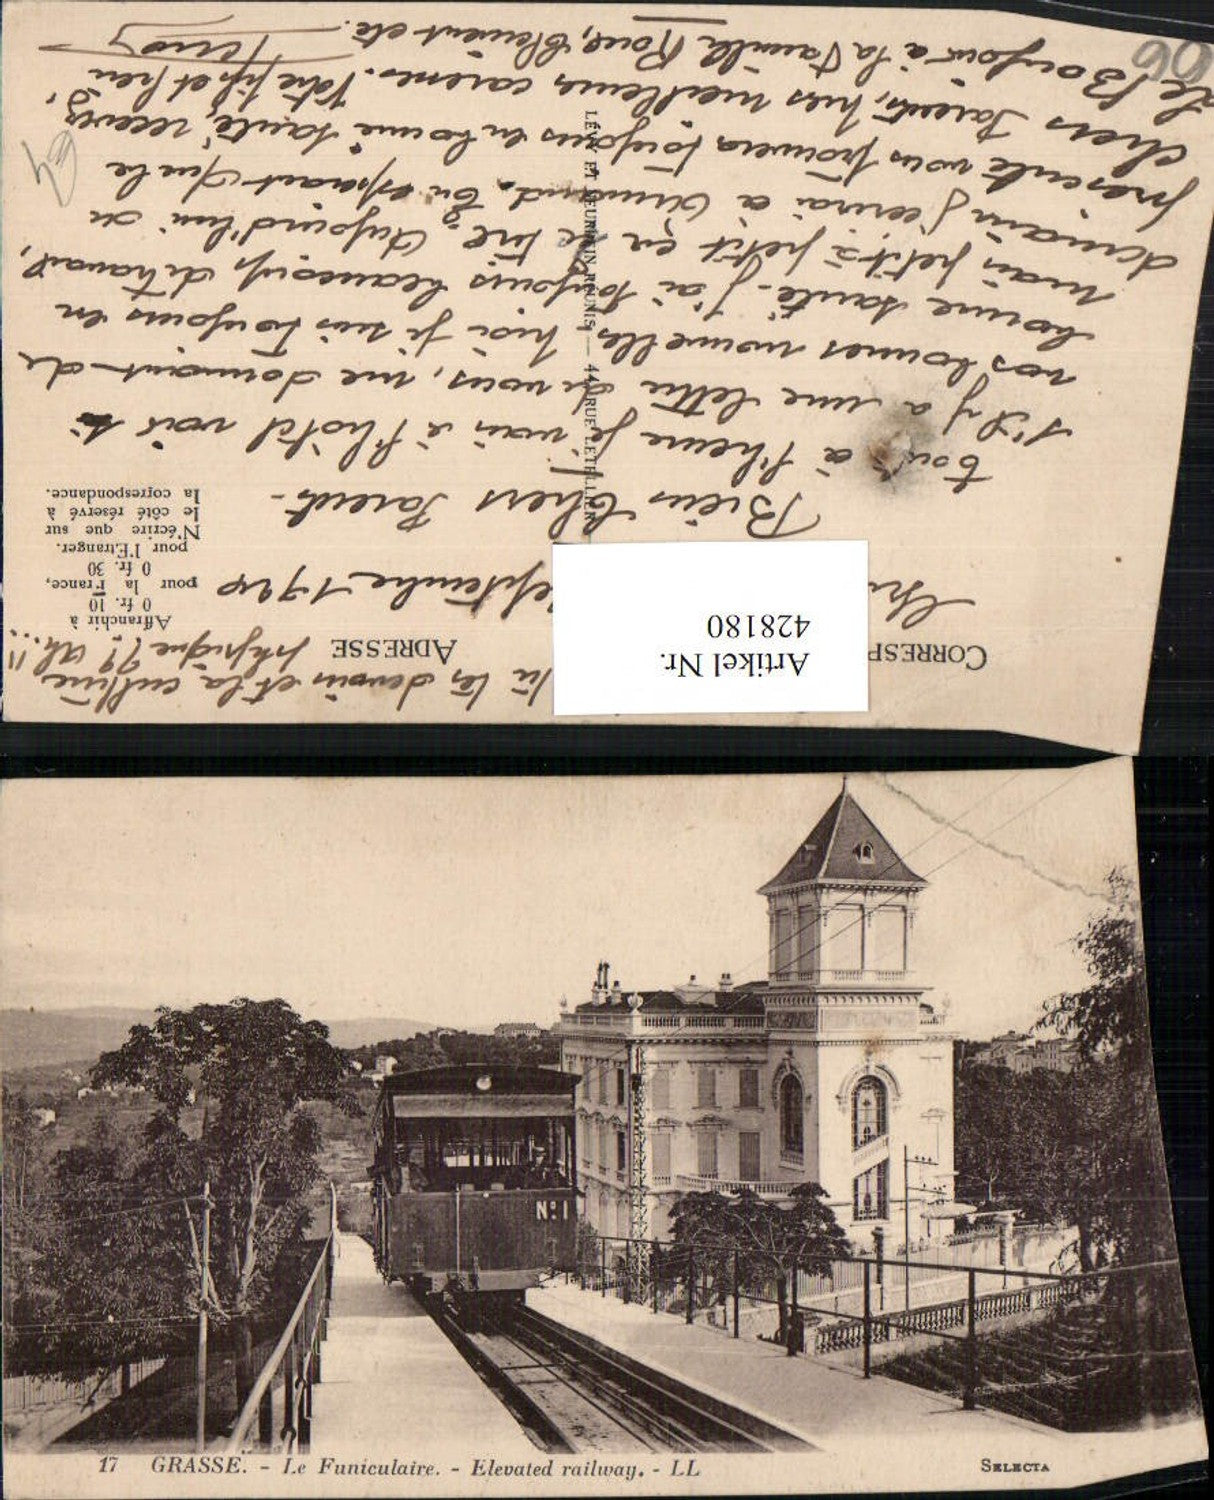 CORRESP
ADRESSE
Artikel Nr.
428180
Affranchir à
0 fr. 10
pour la France,
0 fr. 30
pour l'Etranger.
N'écrire que sur
le côté réservé à
la correspondance.
LÉVY ET NEURDEIN RÉUNIS — 44, RUE LETELLIER
septembre 1924
Bien Chers Parents -
tout à l'heure je vais à l'hôtel voir si
s'il y a une lettre de vous, me donnant de
vos bonnes nouvelles, moi je suis toujours en
bonne santé - j'ai toujours beaucoup de travail,
mais petit à petit Aujourd'hui ou
demain j'écrirai a Armand. En espérant que la
présente vous trouvera toujours en bonne santé, recevez,
chers Parents, mes meilleures caresses. Votre fils et
Le Bonjour à la famille Roue, Clement etc.
les devoirs et la culture
physique ?! Ah...!!
64
06
Nº 1
17 GRASSE. - Le Funiculaire. - Elevated railway. - LL
SELECTA